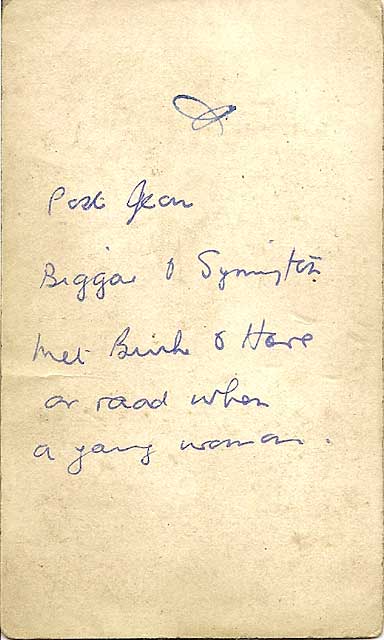 Post Jean
Biggar & Symington
met Burke & Hare
on road when
a young woman.